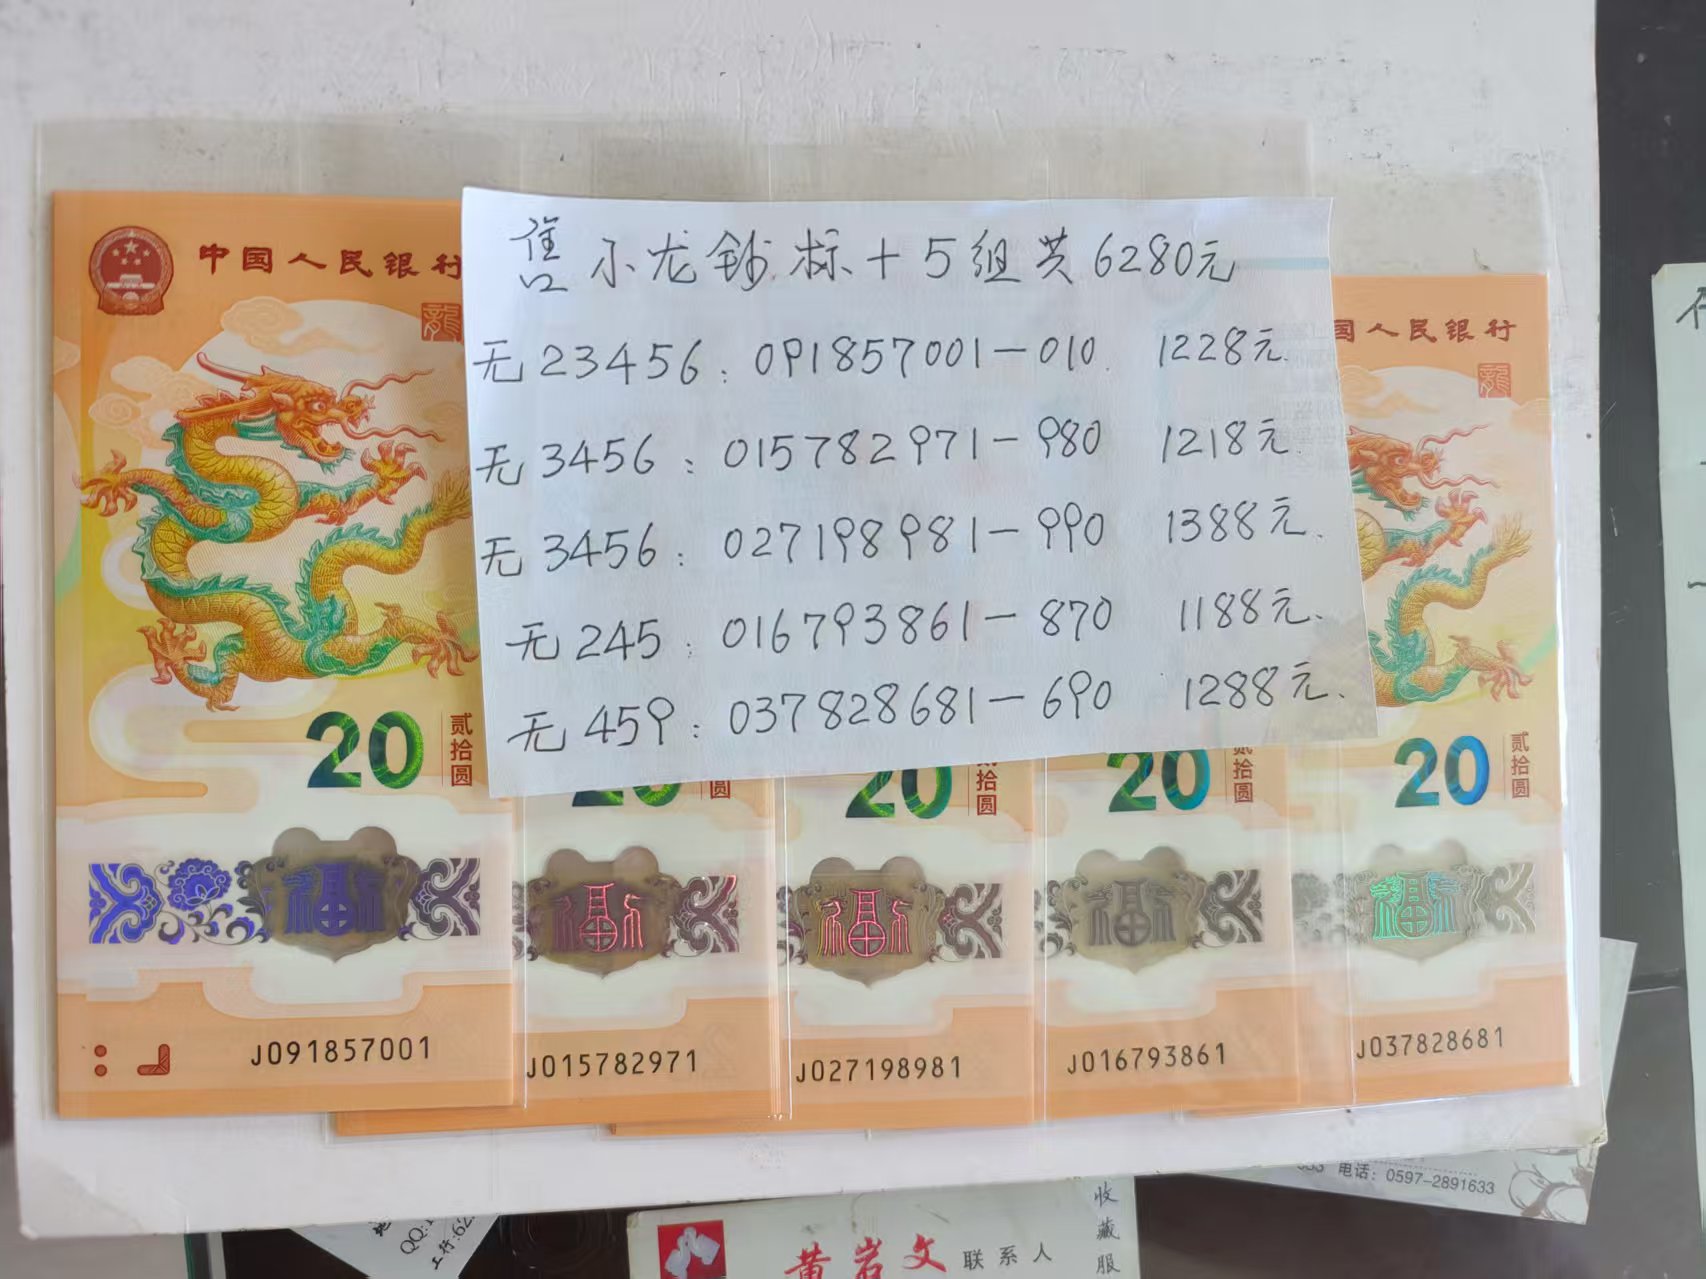 售小龙钞标十5组共6280元
无23456：091857001—010 1228元.
无3456：015782971—980 1218元.
无3456：027198981—990 1388元.
无245：016793861—870 1188元.
无459：037828681—690 1288元.
中国人民银行
龍
20
贰拾圆
福
J091857001
20
圆
福
J015782971
20
贰拾圆
福
J027198981
20
贰拾圆
福
J016793861
国人民银行
龍
20
贰拾圆
福
J037828681
电话：0597-2891633
QQ:1
工行:62
黄岩文 联系人
收藏服